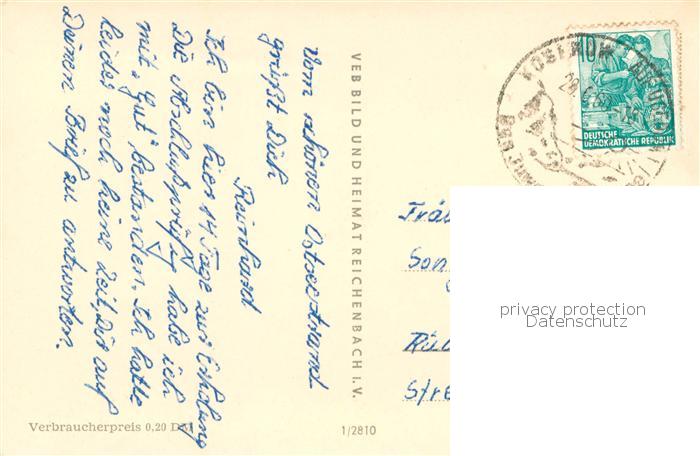 Vom schönen Ostseestrand
grüßt Dich
Reinhard
Ich bin hier 14 Tage zur Erholung
Die Abschlußprüfung habe ich
mit "Gut" bestanden. Ich hatte
leider noch keine Zeit, Dir auf
Deinen Brief zu antworten.
VEB BILD UND HEIMAT REICHENBACH I. V.
Verbraucherpreis 0,20 DM
1/2810
10
DEUTSCHE
DEMOKRATISCHE REPUBLIK
KOSEROW
Frä
Son
Stre
privacy protection
Datenschutz